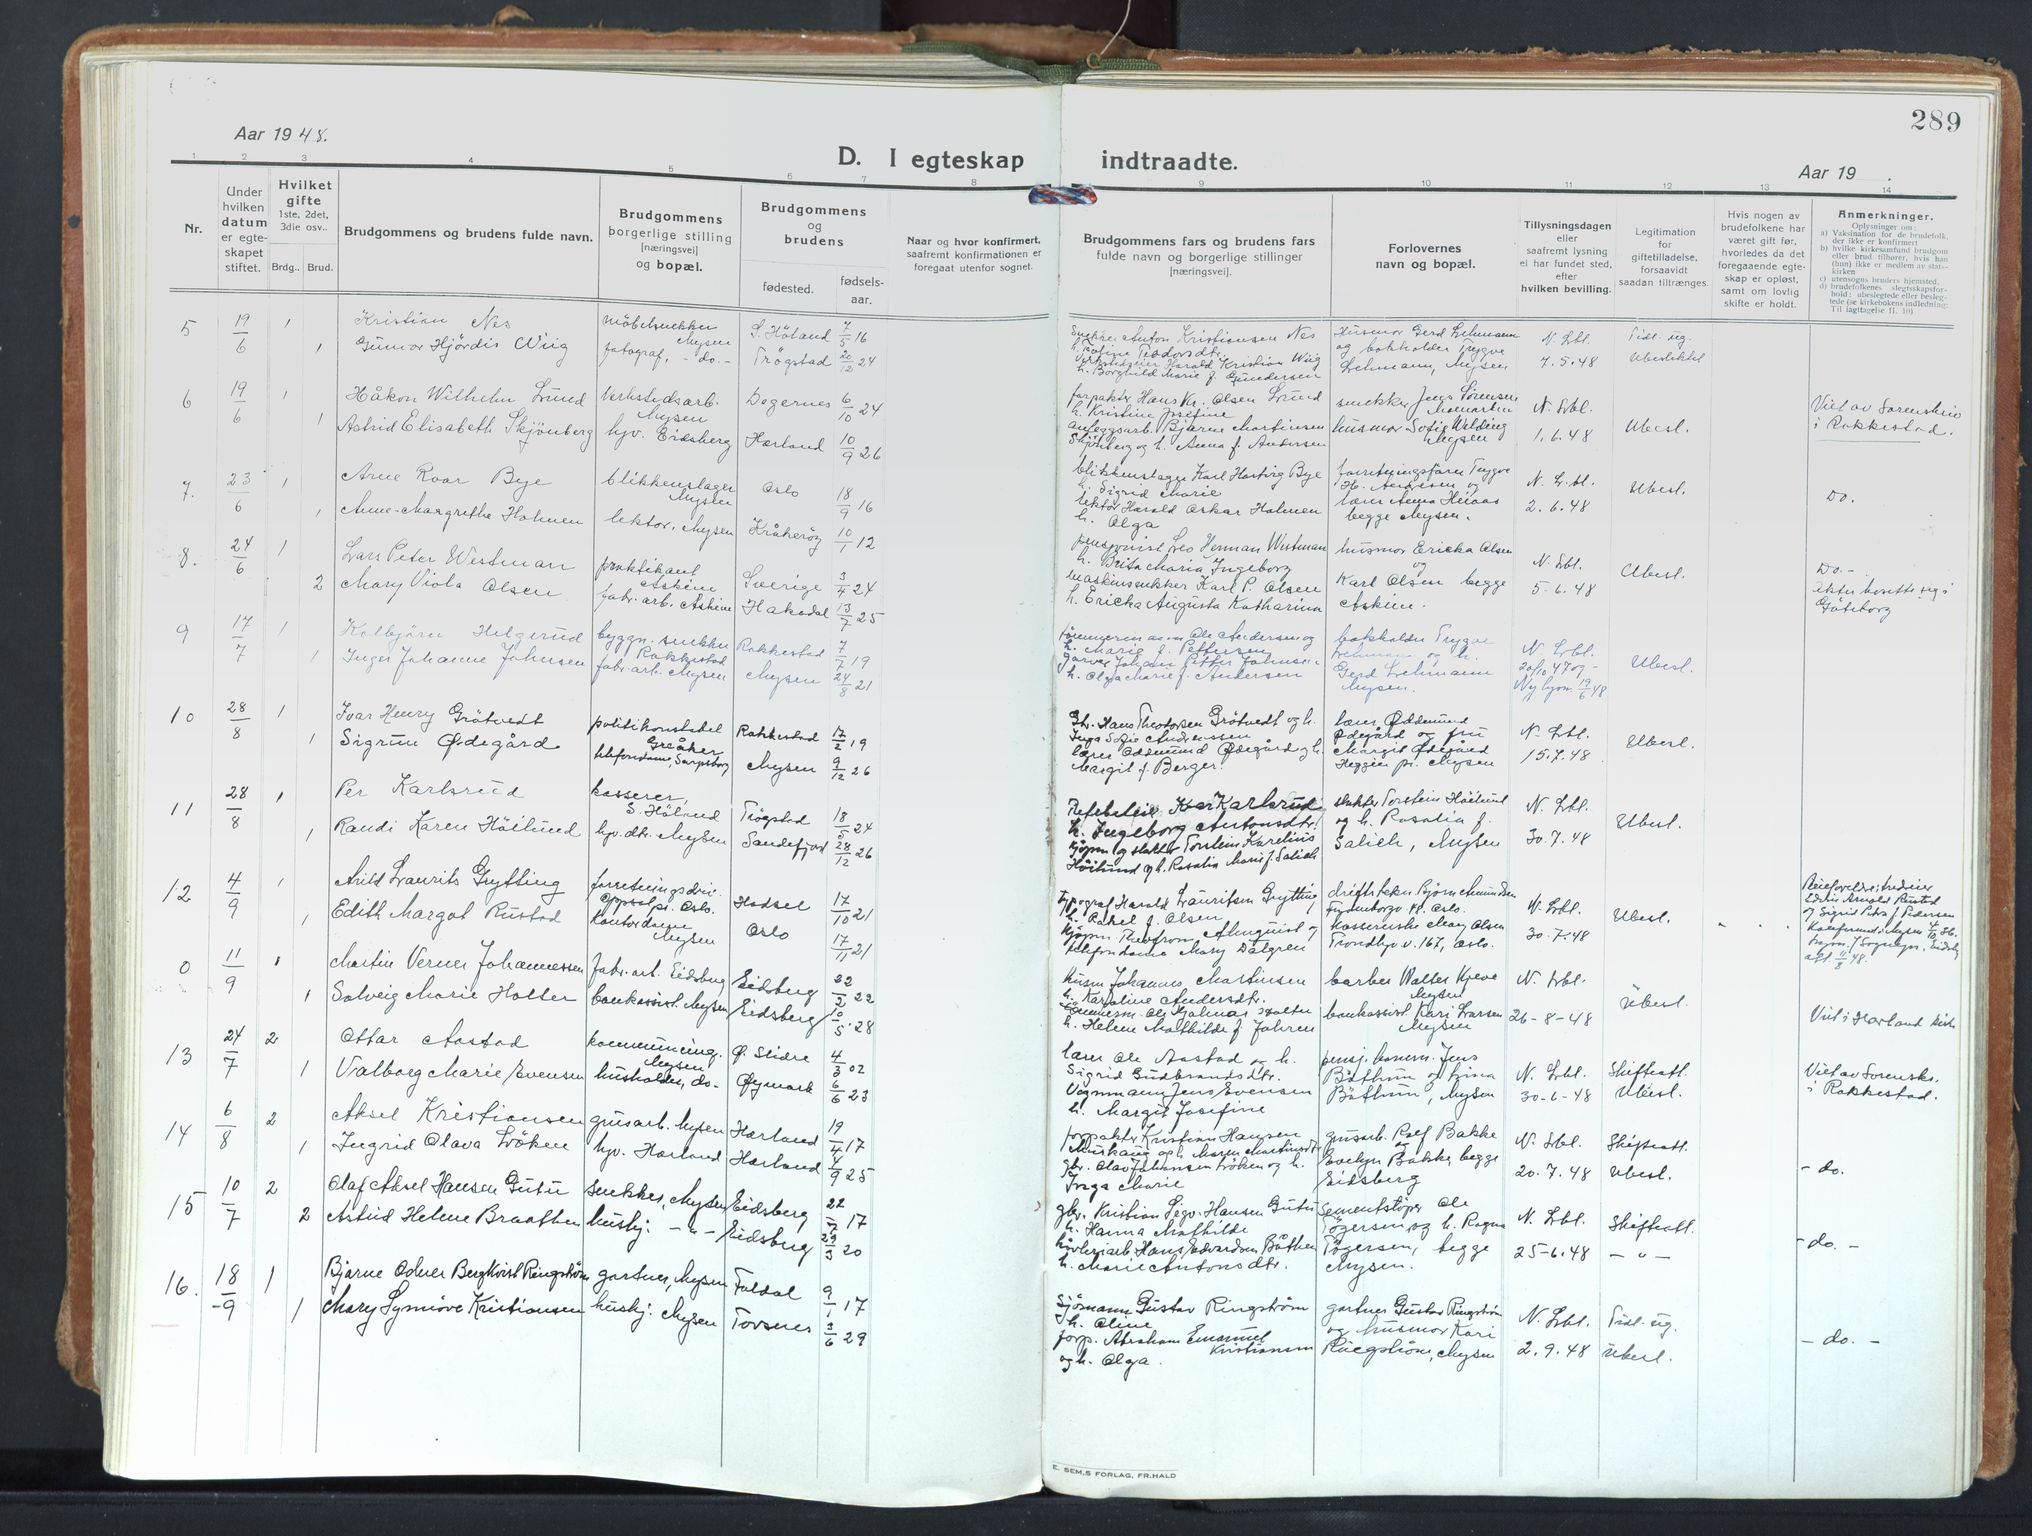 289
Aar 1948.
D. I egteskap indtraadte.
Aar 19 .
1 2 3 4 5 6 7 8 9 10 11 12 13 14
Nr.
Under hvilken datum er egteskapet stiftet.
Hvilket gifte
1ste, 2det, 3die osv..
Brdg.. Brud.
Brudgommens og brudens fulde navn.
Brudgommens borgerlige stilling [næringsvei] og bopæl.
Brudgommens og brudens
fødested.
fødselsaar.
Naar og hvor konfirmert, saafremt konfirmationen er foregaat utenfor sognet.
Brudgommens fars og brudens fars fulde navn og borgerlige stillinger [næringsvei].
Forlovernes navn og bopæl.
Tillysningsdagen eller saafremt lysning ei har fundet sted, efter hvilken bevilling.
Legitimation for giftetilladelse, forsaavidt saadan tiltrænges.
Hvis nogen av brudefolkene har været gift før, hvorledes da det foregaaende egteskap er opløst, samt om lovlig skifte er holdt.
Anmerkninger.
Oplysninger om:
a) Vaksination for de brudefolk, der ikke er konfirmert
b) hvilke kirkesamfund brudgom eller brud tilhører, hvis han (hun) ikke er medlem av statskirken
c) utensogns bruders hjemsted.
d) brudefolkenes slegtsskapsforhold: ubeslegtede eller beslegtede (se kirkebokens indledning: Til iagttagelse II. 10)
5 19/6 1 Kristian Nes møbelsnekker Mysen S. Høland 7/5 16
1 Gunvor Hjørdis Wiig fotograf, - do. - Trøgstad 20/12 24
Snekker Anton Kristiansen Nes
Verkstedseier Harald Kristian Wiig
h. Borghild Marie f. Gundersen
Husmor Gerd Lehmann
og bokholder Trygve
Lehmann, Mysen
N. Lbl.
7.5.48
Tidl. ug.
Ubeslektet
6 19/6 1 Håkon Wilhelm Lund Verkstedsarb. Mysen Degernes 6/10 24
1 Astrid Elisabeth Skjønberg hjv. Eidsberg Hærland 10/9 26
forpakter Hans Kr. Olsen Lund
h. Kristine Josefine
anleggsarb. Bjarne Martinsen
Skjønberg og h. Anna f. Andersen
snekker Jens Sørensen
Momarken
husmor Sofie Welding
Mysen
N. Lbl.
1.6.48
Ubesl.
Viet av Sorenskriv.
i Rakkestad.
7. 23/6 1 Arne Roar Bye blikkenslager Mysen Oslo 18/9 16
1 Anne-Margrethe Holmen lektor, Mysen Kråkerøy 10/1 12
blikkenslager Karl Hartvig Bye
h. Sigrid Marie
lektor Harald Oskar Holmen
h. Olga
forretningsfører Trygve
H. Andresen og
lærer Anna Heiaas
begge Mysen.
N. Lbl.
2.6.48
Ubesl.
Do.
8. 24/6 1 Lars Peter Westman praktikant Askim Sverige 3/4 24
2 Mary Viola Olsen fabr. arb. Askim Hakadal 13/7 25
Leo Herman Westman
h. Brita Maria Ingeborg
maskinsnekker Karl P. Olsen
h. Ericka Augusta Katharina
husmor Ericka Olsen
og
Karl Olsen begge
Askim.
N. Lbl.
5-6.48
Ubesl.
Do -
Göteborg
9 17/7 1 Kolbjørn Helgerud byggn. snekker Rakkestad Rakkestad 7/7 19
1 Inger Johanne Johnsen fabr. arb. Mysen Mysen 24/8 21
tømmermann Ole Andersen og
h. Marie f. Pettersen
garver Johan Petter Johnsen
h. Olga Marie f. Andersen
bokholder Trygve
Lehman og h.
Gerd Lehmann
Mysen.
N. Lbl.
20/10 47 og -
Ny lysn. 19/6 48
Ubesl.
10 28/8 1 Ivar Henry Grøtvedt politikonstabel Greåker Rakkestad 17/2 19
1 Sigrun Ødegård telefondame, Sarpsborg Mysen 9/12 26
Gbr. Hans Theodorsen Grøtvedt og h.
Inga Sofie Andreassen
lærer Oddmund Ødegård og h.
Margit f. Berger.
lærer Oddmund
Ødegård og fru
Margit Ødegård
Heggin pr. Mysen
N. Lbl.
15.7.48
Ubesl.
11 28/8 1 Per Karlsrud kasserer, S. Høland Trøgstad 18/5 24
1 Randi Karen Høilund hjv. dtr. Mysen Sandefjord 28/12 26
Karlsrud
h. Ingeborg Antonsdtr.
kjøpm. og slakter Torstein Karelius
Høilund og h. Rosalia Marie f. Salich
slakter Torstein Høilund
og h. Rosalia f.
Salich, Mysen
N. Lbl.
30.7.48
Ubesl.
12 4/9 1 Arild Laurits Grytting Oppsal pr. Oslo. Hadsel 17/10 21
1 Edith Margot Rustad Kontordame Mysen Oslo 17/11 21
Typograf Harald Lauritsen Grytting,
h. Rakel f. Olsen
Kjøpm. Theofrom Almquist og
telefondame Mary Dalgren
Bjørn Amundsen
Oslo.
kassererske Mary Olsen
Trondhjv. 167, Oslo.
N. Lbl.
30.7.48
Ubesl.
Edvin Arnold Rustad
og Sigrid Petra f. Pedersen
0 11/9 1 Martin Verner Johannessen fabr. arb. Eidsberg Eidsberg 22/2 22
1 Solveig Marie Holter bankassist. Mysen Eidsberg 10/5 28
Husm Johannes Martinsen
h. Karoline Andersdtr.
Tømmerm. Ole Hjalmar Holter
h. Helene Mathilde f. Jahren
barber Walter Kjeve
Mysen
bankassist. Kari Larsen
Mysen
N. Lbl.
26-8-48
Ubesl.
Viet i Hærland kirke
13 24/7 2 Ottar Aastad kommuneing. Mysen, Ø. Slidre 4/3 02
1 Valborg Marie Evensen husholder, do- Øymark 6/6 23
lærer Ole Aastad og h.
Sigrid Gudbrandsdtr.
Vognmann Jens Evensen
h. Margit Josefine
Jens
Båthum og
Båthum, Mysen
N. Lbl.
30-6-48
Skifteatt.
Ubesl.
Viet av Sorensks.
i Rakkestad.
14 6/8 2 Aksel Kristiansen gusarb. Mysen Hærland 19/4 17
1 Ingrid Olava Løken hjv. Hærland Hærland 4/9 25
forpakter Kristian Hansen
og h. Maren Martinsdtr
gbr. Olav Johansen Løken og h.
Inga Marie
gusarb. Rolf Bakke
og
Evelyn Bakke, begge
Eidsberg
N. Lbl.
20.7.48
Skifteatt.
Ubesl.
- do.
15 10/7 2 Olaf Aksel Hansen Gutu snekker, Mysen Eidsberg 22/7 17
2 Astrid Helene Braathen hushj: - " - Eidsberg 23/3 20
gbr. Kristian Segv. Hansen Gutu
h. Hanna Mathilde
høvleriarb. Hans Edvardsen Båthen
h. Marie Antonsdtr.
Sementstøper Ole
Tøgersen, og h. Ragna
Tøgersen, begge
Mysen.
N. Lbl.
25-6.48
Skifteatt.
- " -
- do. -
16. 18/9 1 Bjarne Odner Bergkvist Ringstrøm gartner, Mysen Foldal 9/1 17
1 Mary Synnøve Kristiansen hushj: Mysen Torsnes 3/6 29
Sjømann Gustav Ringstrøm
h. Oline
forp. Abraham Emanuel
Kristiansen
og h. Olga.
gartner Gustav Ringstrøm
og husmor Kari
Ringstrøm, Mysen
N. Lbl.
2.9.48
Tidl. ug.
Ubesl.
- do. -
E. SEM,S FORLAG, FR.HALD